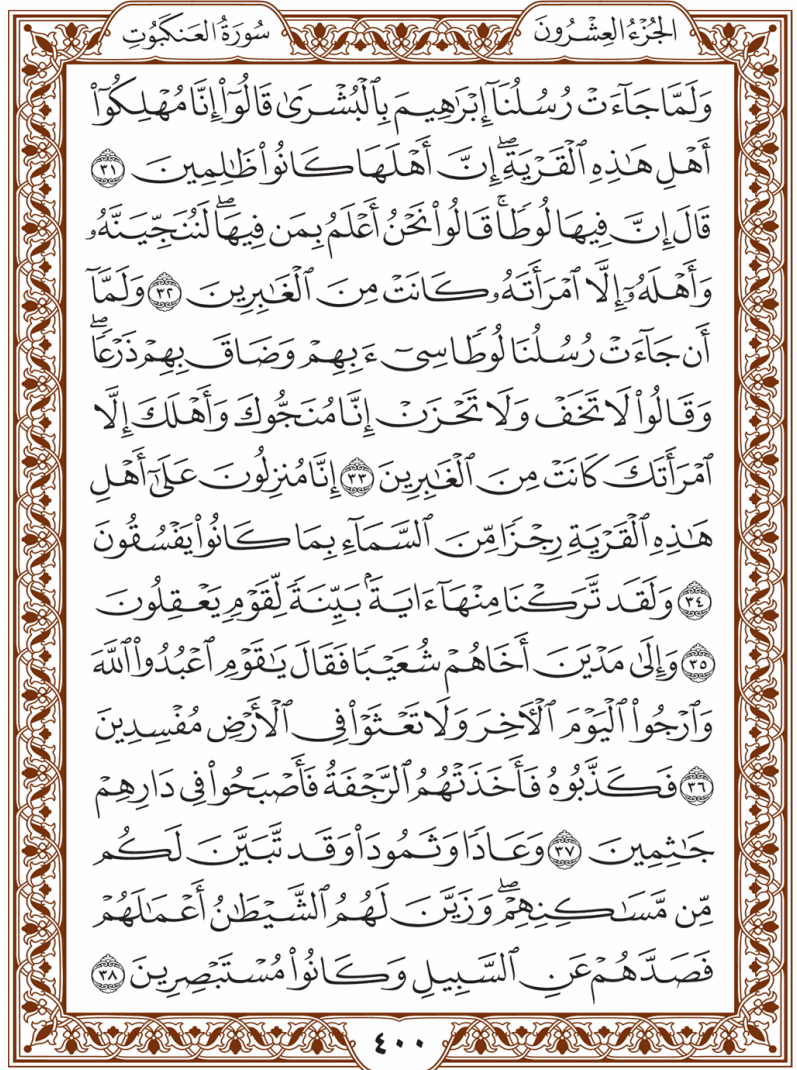 الجُزْءُ العِشْرُونَ سُورَةُ العَنكَبُوتِ
وَلَمَّا جَآءَتْ رُسُلُنَآ إِبْرَٰهِيمَ بِٱلْبُشْرَىٰ قَالُوٓاْ إِنَّا مُهْلِكُوٓاْ
أَهْلِ هَٰذِهِ ٱلْقَرْيَةِۖ إِنَّ أَهْلَهَا كَانُواْ ظَٰلِمِينَ ٣١
قَالَ إِنَّ فِيهَا لُوطٗاۚ قَالُواْ نَحْنُ أَعْلَمُ بِمَن فِيهَاۖ لَنُنَجِّيَنَّهُۥ
وَأَهْلَهُۥٓ إِلَّا ٱمْرَأَتَهُۥ كَانَتْ مِنَ ٱلْغَٰبِرِينَ ٣٢ وَلَمَّآ
أَن جَآءَتْ رُسُلُنَا لُوطٗا سِيٓءَ بِهِمْ وَضَاقَ بِهِمْ ذَرْعٗاۖ
وَقَالُواْ لَا تَخَفْ وَلَا تَحْزَنْ إِنَّا مُنَجُّوكَ وَأَهْلَكَ إِلَّا
ٱمْرَأَتَكَ كَانَتْ مِنَ ٱلْغَٰبِرِينَ ٣٣ إِنَّا مُنزِلُونَ عَلَىٰٓ أَهْلِ
هَٰذِهِ ٱلْقَرْيَةِ رِجْزٗا مِّنَ ٱلسَّمَآءِ بِمَا كَانُواْ يَفْسُقُونَ
٣٤ وَلَقَد تَّرَكْنَا مِنْهَآ ءَايَةَۢ بَيِّنَةٗ لِّقَوْمٖ يَعْقِلُونَ
٣٥ وَإِلَىٰ مَدْيَنَ أَخَاهُمْ شُعَيْبٗا فَقَالَ يَٰقَوْمِ ٱعْبُدُواْ ٱللَّهَ
وَٱرْجُواْ ٱلْيَوْمَ ٱلْأٓخِرَ وَلَا تَعْثَوْاْ فِي ٱلْأَرْضِ مُفْسِدِينَ
٣٦ فَكَذَّبُوهُ فَأَخَذَتْهُمُ ٱلرَّجْفَةُ فَأَصْبَحُواْ فِي دَارِهِمْ
جَٰثِمِينَ ٣٧ وَعَادٗا وَثَمُودَاْ وَقَد تَّبَيَّنَ لَكُم
مِّن مَّسَٰكِنِهِمْۖ وَزَيَّنَ لَهُمُ ٱلشَّيْطَٰنُ أَعْمَٰلَهُمْ
فَصَدَّهُمْ عَنِ ٱلسَّبِيلِ وَكَانُواْ مُسْتَبْصِرِينَ ٣٨
٤٠٠